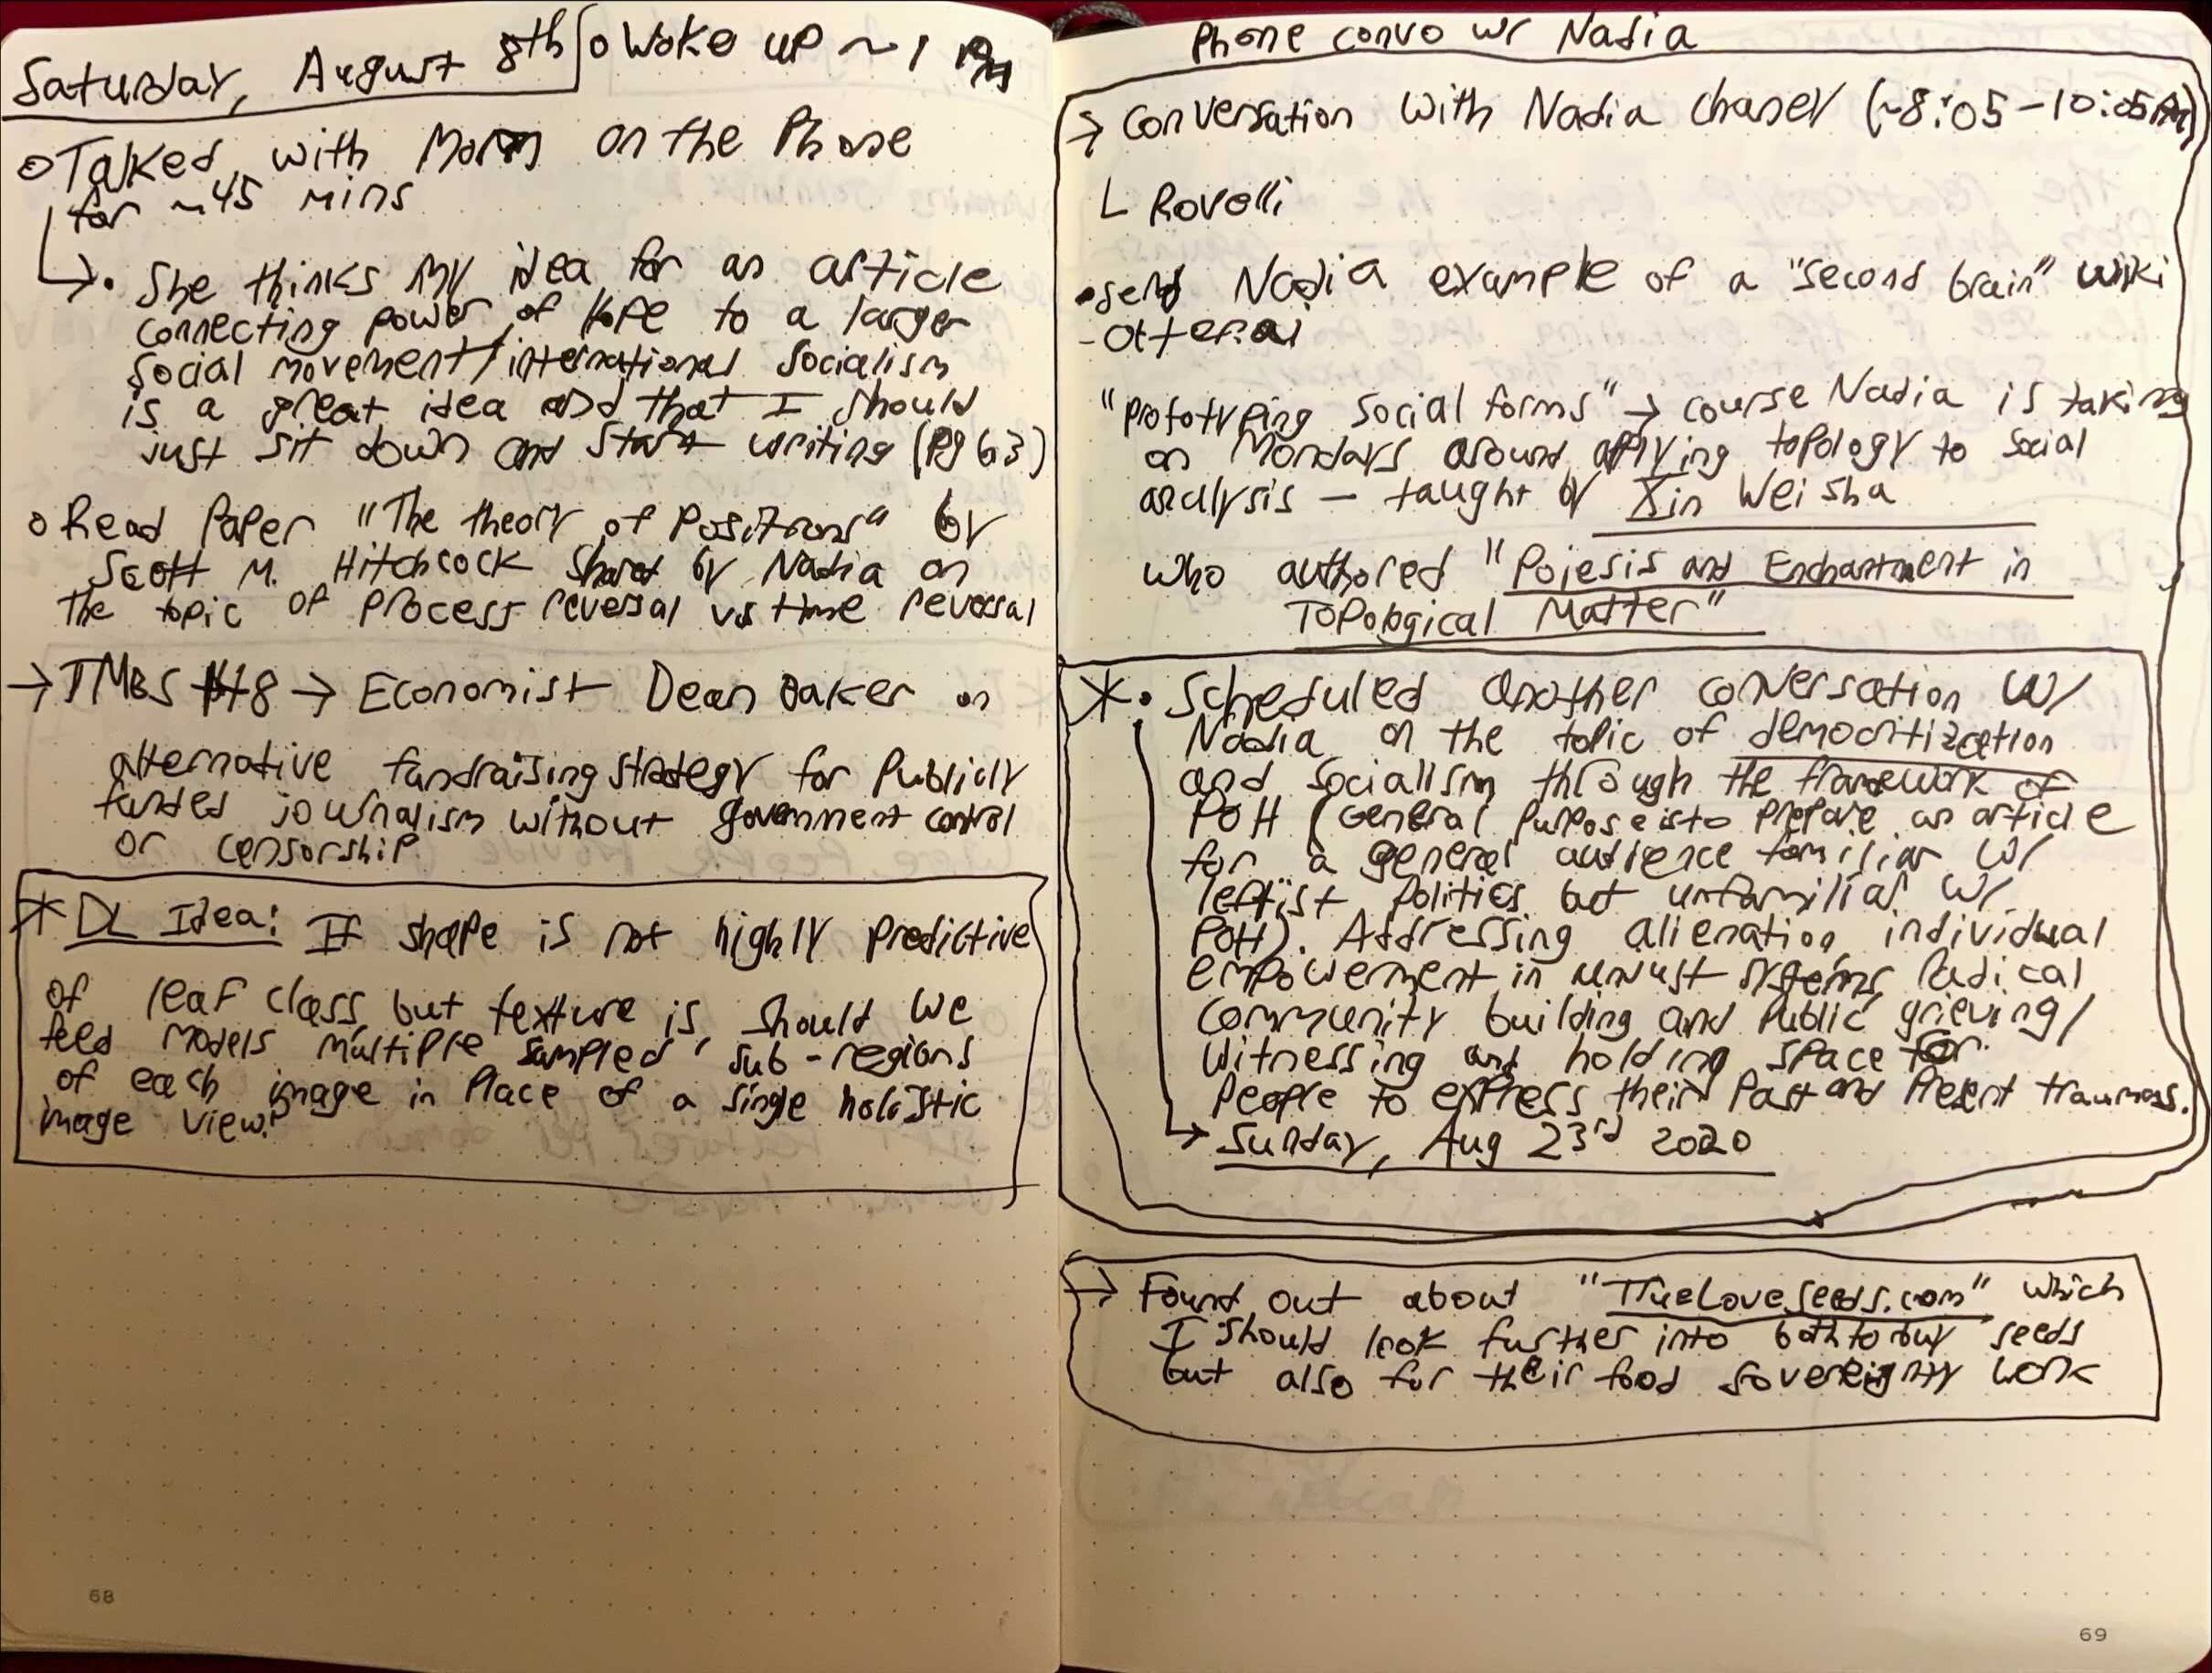 Saturday, August 8th
o Woke up ~ 1 PM
o Talked with Mom on the Phone
for ~45 mins
↳ • She thinks my idea for an article
connecting power of Hope to a larger
social movement/international socialism
is a great idea and that I should
just sit down and start writing (pg 63)
o Read Paper "The theory of Positrons" by
Scott M. Hitchcock shared by Nadia on
the topic of process reversal vs time reversal
→ TMBS #48 → Economist Dean Baker on
alternative fundraising strategy for Publicly
funded journalism without government control
or censorship.
* DL Idea: If shape is not highly predictive
of leaf class, but texture is, should we
feed models multiple sampled sub-regions
of each image in place of a single holistic
image view?
68
Phone convo w/ Nadia
→ Conversation with Nadia Chaney (~8:05-10:05PM)
└ Rovelli
• send Nadia example of a "second brain" wiki
- otter.ai
"prototyping social forms" → course Nadia is taking
on Mondays around applying topology to social
analysis — taught by Xin Wei Sha
who authored "Poiesis and Enchantment in
Topological Matter"
* • Scheduled another conversation w/
Nadia on the topic of democritization
and socialism through the framework of
POH (General Purpose is to prepare an article
for a general audience familiar w/
leftist politics but unfamiliar w/
POH). Addressing alienation, individual
empowerment in unjust systems, radical
community building and public grieving/
witnessing and holding space for
people to express their Past and Present traumas.
↳ Sunday, Aug 23rd 2020
→ Found out about "TrueLoveSeeds.com" which
I should look further into both to buy seeds
but also for their food sovereignty work
69